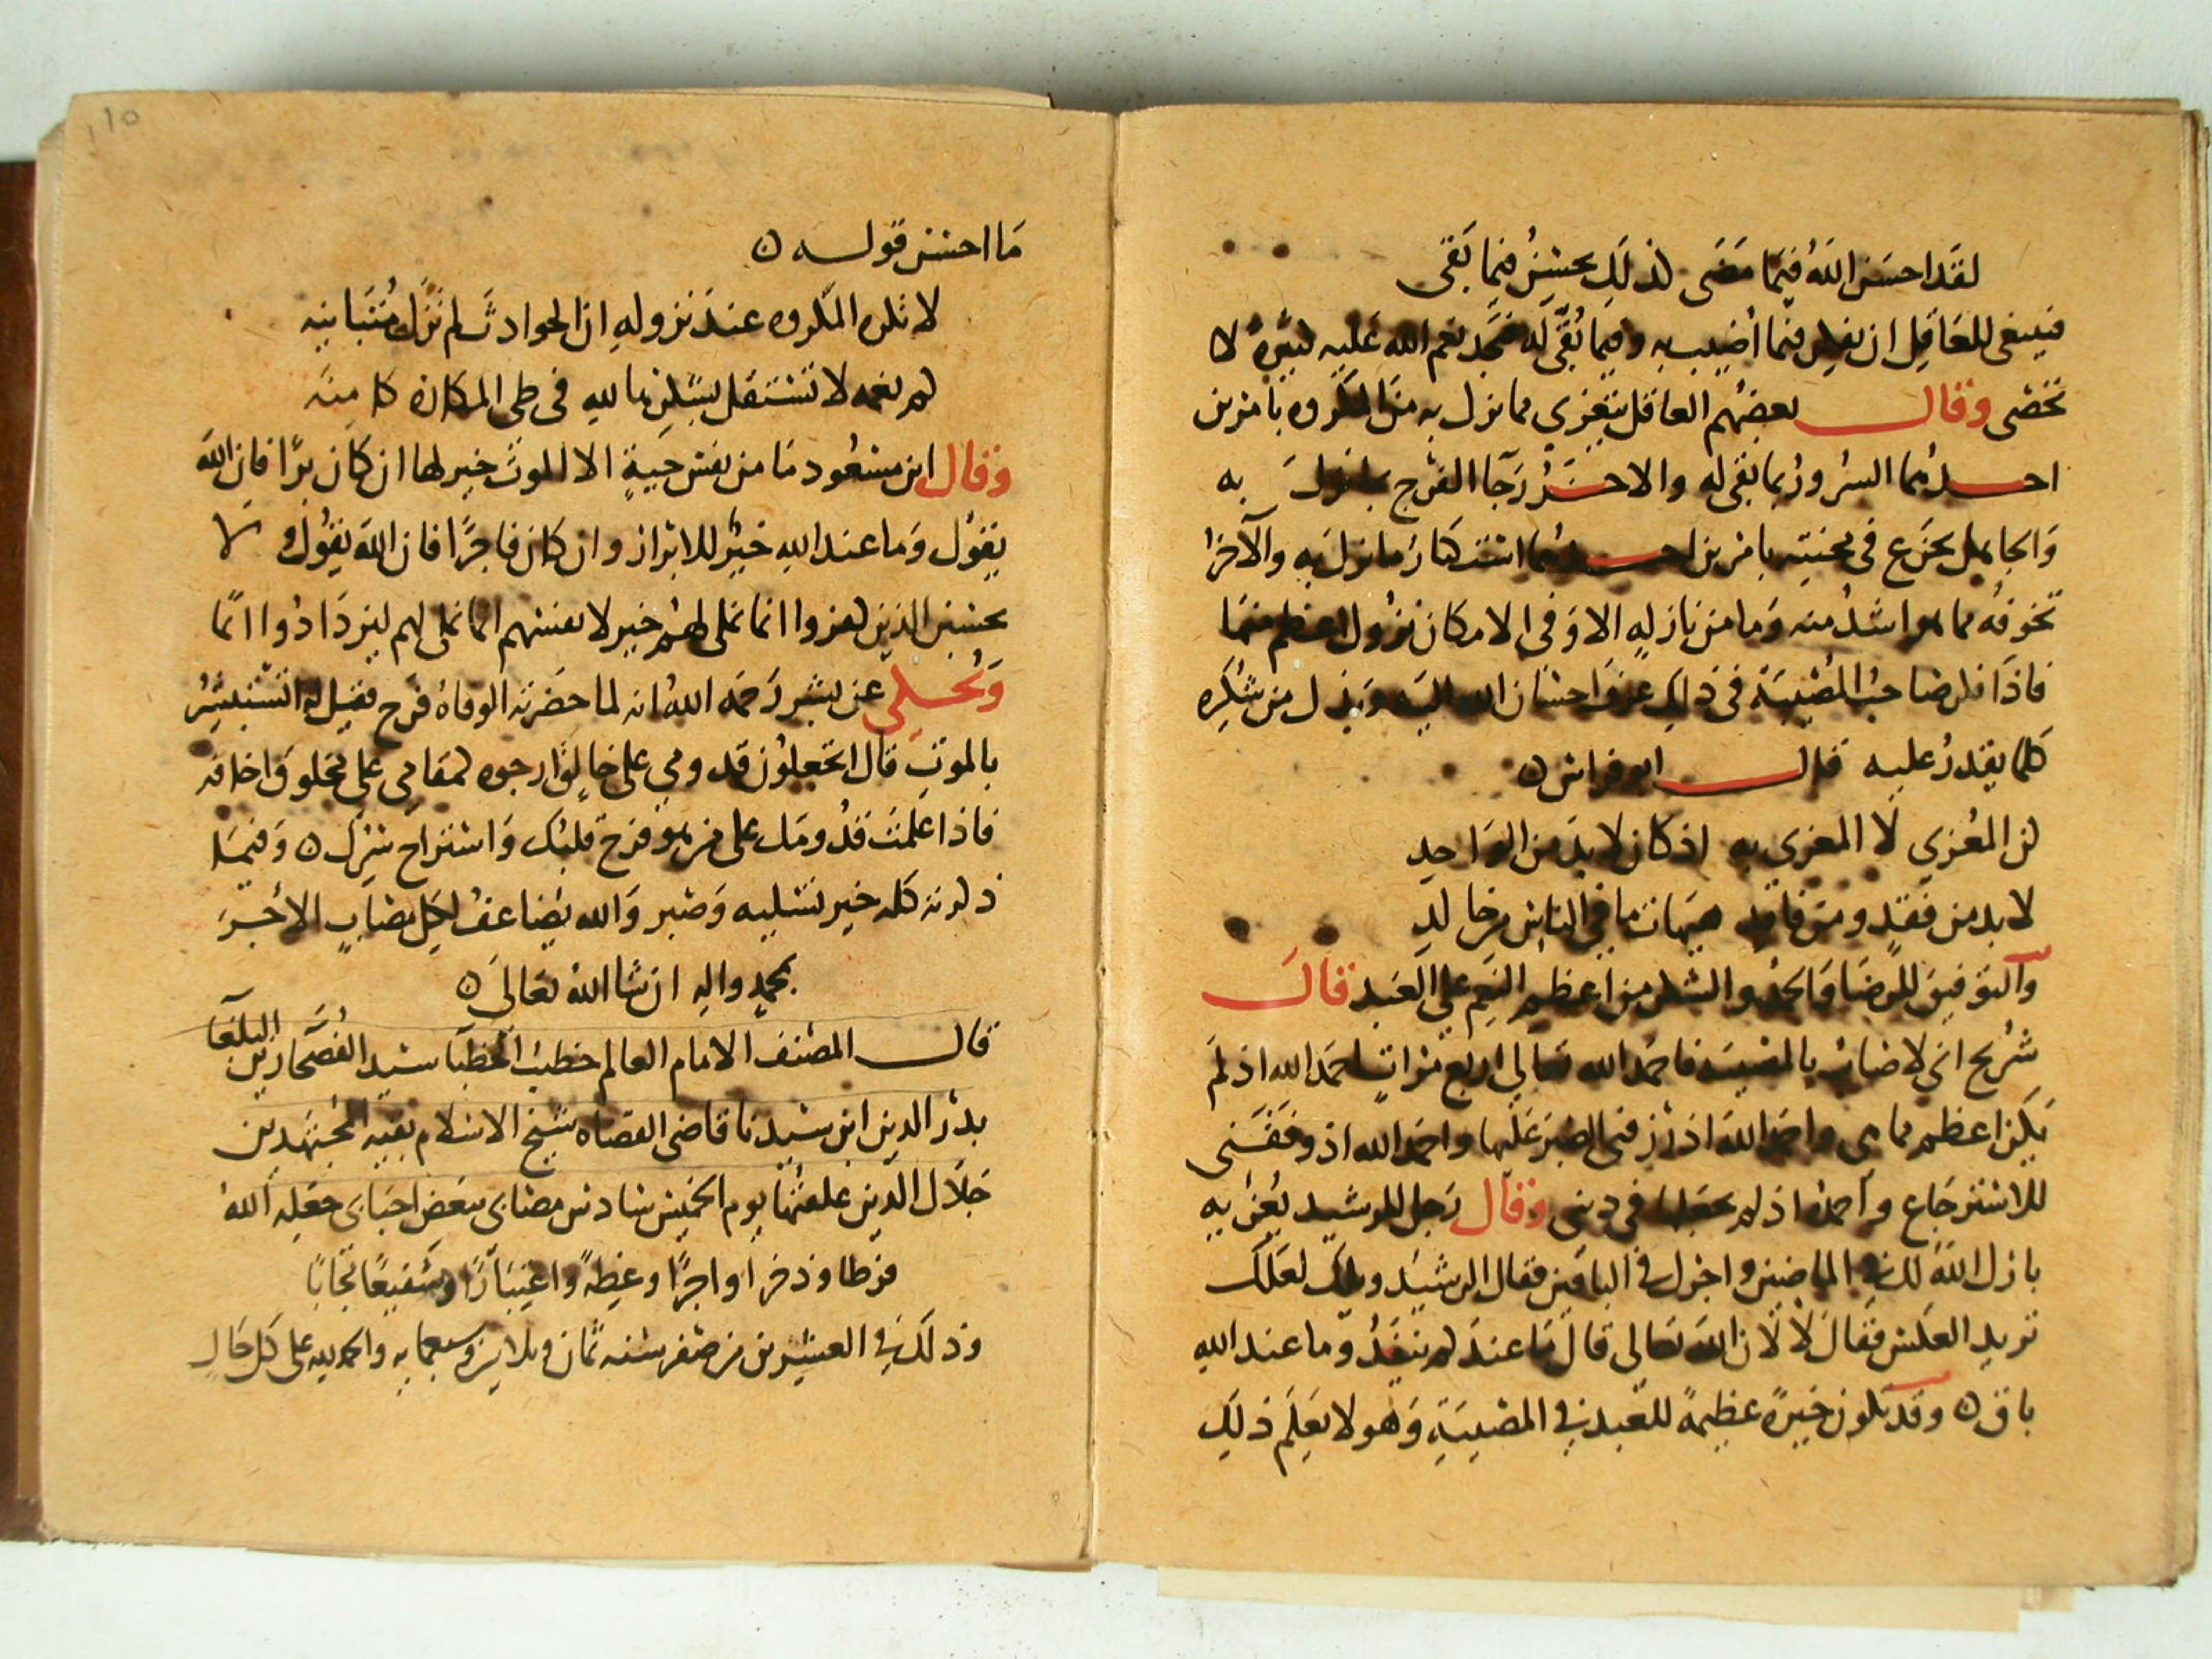 لقد احسن الله فيما مضى لذلك يحسن فيما بقى
فينبغى للعاقل ان يفكر فيما أصيب به وفيما بُقّى له فيجد نعم الله عليه كثيرة لا
تحصى وقال بعضهم العاقل يتعزى مما نزل به من المكروه بامرين
احدهما السرور بما بقى له والاخر رجا الفرج مما نزل به
والجاهل يجزع فى محنته بامرين احدهما استكثار ما نزل به والآخر
تخوفه مما هو اشد منه وما من نازله الا وفى الامكان نزول اعظم منها
فاذا فكر صاحب المصيبة فى ذلك عرف احسان الله اليه وبذل من شكره
كلما يقدر عليه قال ابو فراس ه
كن المعزي لا المعزى به اذ كان لا بد من الواحد
لا بد من فقد ومن فاقد هيهات ما فى الناس من خالد
والتوفيق للرضا والحمد والشكر من اعظم النعم على العبد قال
شريح انى لاصاب بالمصيبة فاحمد الله تعالى اربع مرات احمد الله اذ لم
يكن اعظم مما هى واحمد الله اذ رزقنى الصبر عليها واحمد الله اذ وفقنى
للاسترجاع واحمده اذ لم يجعلها فى دينى وقال رجل للرشيد يعزيه
بارك الله لك فى الماضين واجزل فى الباقين فقال الرشيد ويلك لعلك
تريد العكس فقال لا لان الله تعالى قال ما عندكم ينفد وما عند الله
باق ه وقد تكون خيرة عظيمة للعبد فى المصيبة وهو لا يعلم ذلك
١٥
ما احسن قوله ه
لا تكره المكروه عند نزوله ان الحوادث لم تزل متباينه
كم نعمه لا تستقل بشكرها لله فى طى المكاره كامنه
وقال ابن مسعود ما من نفس حية الا الموت خير لها ان كان برا فان الله
يقول وما عند الله خير للابرار وان كان فاجرا فان الله يقول ولا
يحسبن الذين كفروا انما نملى لهم خير لانفسهم انما نملى لهم ليزدادوا اثما
وحكى عن بشر رحمه الله انه لما حضرته الوفاه فرح فقيل له اتستبشر
بالموت قال اتجعلون قدومى على خالق ارجوه كمقامى على مخلوق اخافه
فاذا علمت قدومك على من هو فرح قلبك واستراح سرك ه وفيما
ذكرته كله خير تسليه وصبر والله يضاعف لكل مصاب الاجر
بمحمد واله ان شا الله تعالى ه
قال المصنف الامام العالم خطيب الخطبا سيد الفصحا زين البلغا
بدر الدين ابن سيدنا قاضى القضاه شيخ الاسلام بقيه المجتهدين
جلال الدين علقتها يوم الخميس سادس مصابى ببعض احبابى جعله الله
فرطا وذخرا واجرا وعظة واعتبارا وشفيعا مجابا
وذلك فى العشرين من صفر سنه ثمان وثلاثين وسبعمايه والحمد لله على كل حال